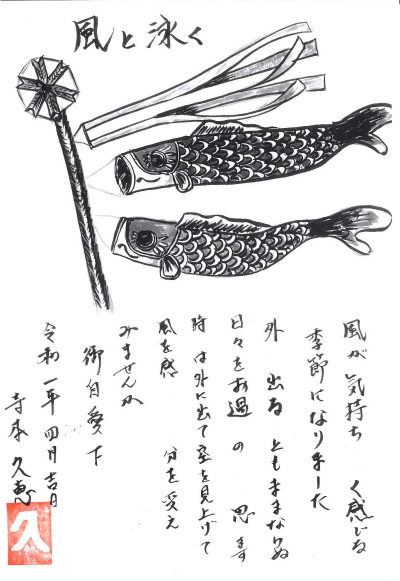 風と泳く
風が気持ち く感じる
季節になりました
外 出る ともままならぬ
日々をお過 の 思 ます
時 は外に出て空を見上げて
風を感 分を変え
みませんか
御自愛下
令和 一年四月吉日
寺本久恵
久